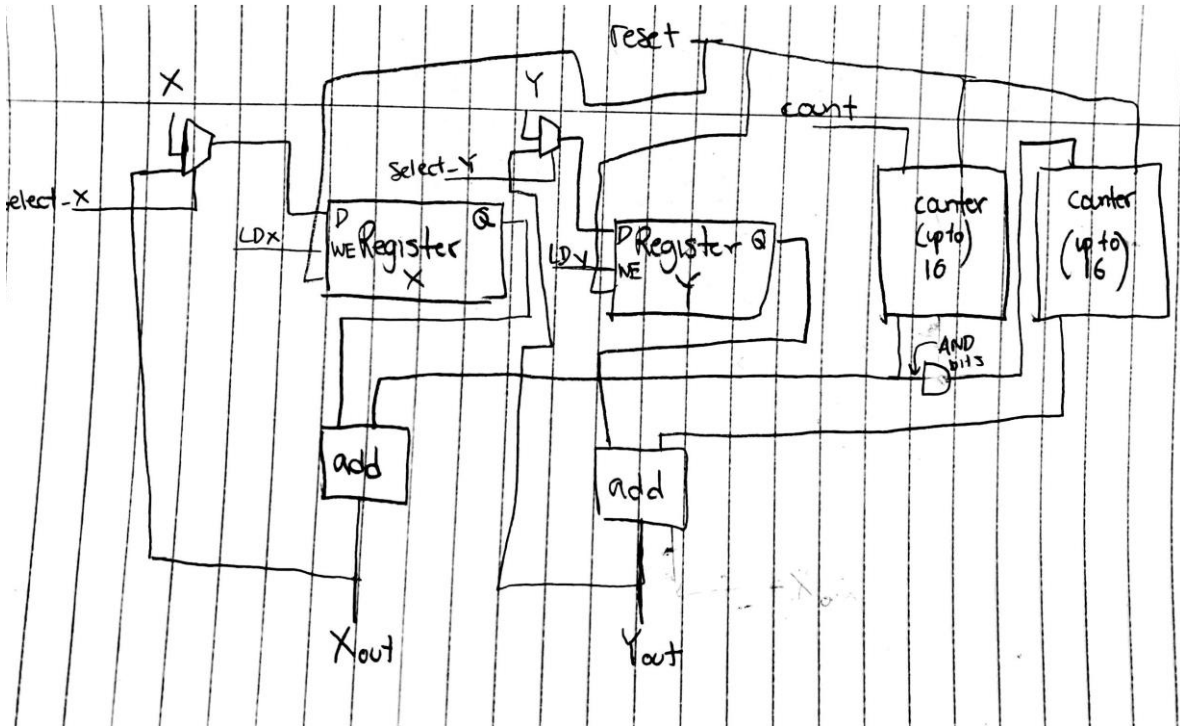 reset
X
Y
count
select_Y
select_X
D
Q
LDx
WE
Register
X
D
Q
LDy
WE
Register
Y
counter
(up to)
16
counter
(up to)
16
AND
bits
add
add
Xout
Yout